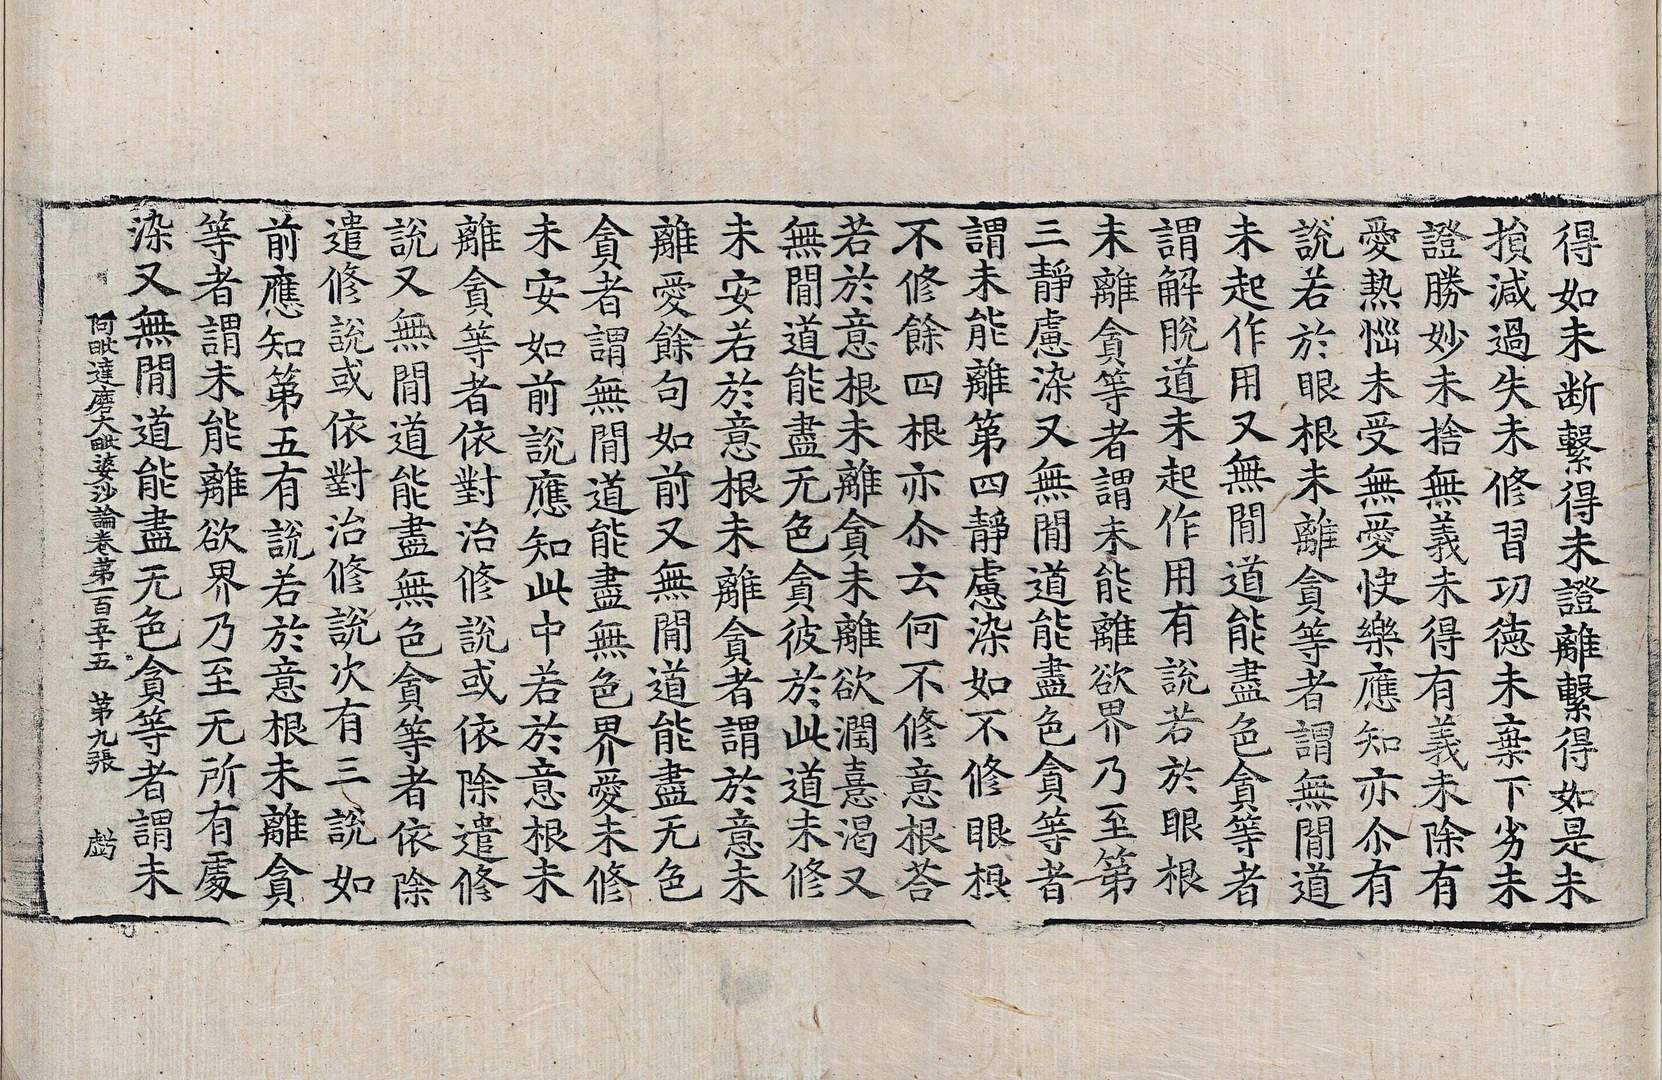 得如未断繫得未證離繫得如是未
損減過失未修習功德未棄下劣未
證勝妙未捨無義未得有義未除有
愛熱惱未受無愛快樂應知亦尒有
說若於眼根未離貪等者謂無間道
未起作用又無間道能盡色貪等者
謂解脫道未起作用有說若於眼根
未離貪等者謂未能離欲界乃至第
三靜慮染又無間道能盡色貪等者
謂未能離第四靜慮染如不修眼根
不修餘四根亦尒云何不修意根荅
若於意根未離貪未離欲潤憙渴又
無間道能盡无色貪彼於此道未修
未安若於意根未離貪者謂於意未
離愛餘句如前又無間道能盡无色
貪者謂無間道能盡無色界愛未修
未安如前說應知此中若於意根未
離貪等者依對治修說或依除遣修
說又無間道能盡無色貪等者依除
遣修說或依對治修說次有三說如
前應知第五有說若於意根未離貪
等者謂未能離欲界乃至无所有處
染又無間道能盡无色貪等者謂未
阿毗達磨大毗婆沙論卷第一百五十五　第九張